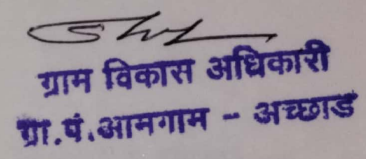 ग्राम विकास अधिकारी
ग्रा.पं.आमगाम - अच्छाड